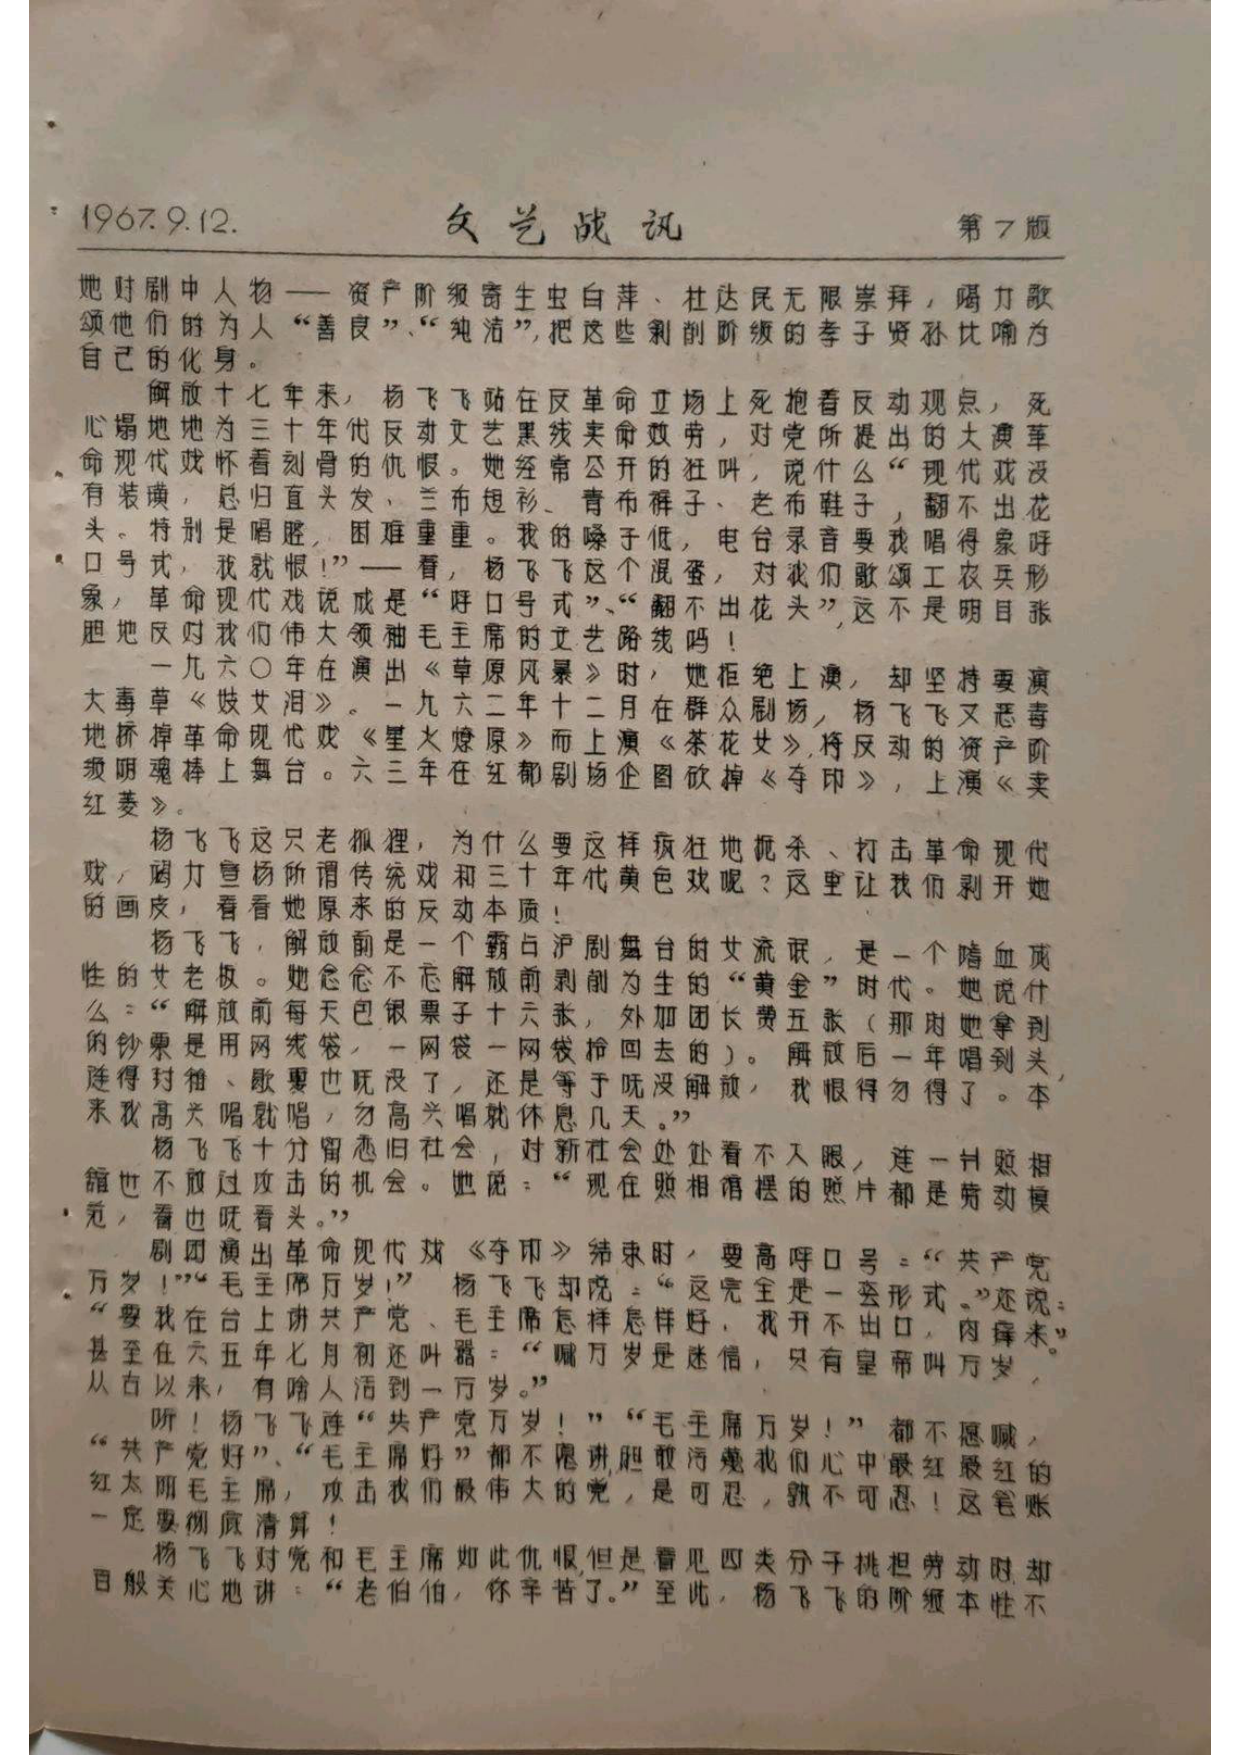 1967.9.12.
文艺战讯
第7版
她对剧中人物——资产阶级寄生虫白萍、杜达民无限崇拜，竭力歌
颂他们的为人“善良”、“纯洁”，把这些剥削阶级的孝子贤孙比喻为
自己的化身。
解放十七年来，杨飞飞站在反革命立场上死抱着反动观点，死
心塌地地为三十年代反动文艺黑线卖命效劳，对党所提出的大演革
命现代戏怀着刻骨的仇恨。她经常公开的狂叫，说什么“现代戏没
有装璜，总归直头发、兰布短衫、青布裤子、老布鞋子，翻不出花
头。特别是唱腔，困难重重。我的嗓子低，电台录音要我唱得象呼
口号式，我就恨！”——看，杨飞飞这个混蛋，对我们歌颂工农兵形
象，革命现代戏说成是“呼口号式”、“翻不出花头”，这不是明目张
胆地反对我们伟大领袖毛主席的文艺路线吗！
一九六〇年在演出《草原风暴》时，她拒绝上演，却坚持要演
大毒草《妓女泪》。一九六二年十二月在群众剧场，杨飞飞又恶毒
地挤掉革命现代戏《星火燎原》而上演《茶花女》，将反动的资产阶
级明魂捧上舞台。六三年在红都剧场企图砍掉《夺印》，上演《卖
红菱》。
杨飞飞这只老狐狸，为什么要这样疯狂地扼杀、打击革命现代
戏，竭力宣扬所谓传统戏和三十年代黄色戏呢？这里让我们剥开她
的画皮，看看她原来的反动本质！
杨飞飞，解放前是一个霸占沪剧舞台的女流氓，是一个嗜血成
性的女老板。她念念不忘解放前剥削为生的“黄金”时代。她说什
么：“解放前每天包银票子十六张，外加团长费五张（那时她拿到
的钞票是用网线袋，一网袋一网袋拎回去的）。解放后一年唱到头，
连得封箱、歇夏也呒没了，还是等于呒没解放，我恨得勿得了。本
来我高兴唱就唱，勿高兴唱就休息几天。”
杨飞飞十分留恋旧社会，对新社会处处看不入眼，连一爿照相
馆也不放过攻击的机会。她说：“现在照相馆摆的照片都是劳动模
范，看也呒看头。”
剧团演出革命现代戏《夺印》结束时，要高呼口号：“共产党
万岁！”“毛主席万岁！”杨飞飞却说：“这完全是一套形式。”还说：
“要我在台上讲共产党、毛主席怎样怎样好，我开不出口，肉痒来。”
甚至在六五年七月初还叫嚣：“喊万岁是迷信，只有皇帝叫万岁，
从古以来，有啥人活到一万岁。”
听！杨飞飞连“共产党万岁！”“毛主席万岁！”都不愿喊，
“共产党好”、“毛主席好”都不愿讲，胆敢污蔑我们心中最红最红的
红太阳毛主席，攻击我们最伟大的党，是可忍，孰不可忍！这笔账
一定要彻底清算！
杨飞飞对党和毛主席如此仇恨，但是看见四类分子挑担劳动时却
百般关心地讲：“老伯伯，你辛苦了。”至此，杨飞飞的阶级本性不